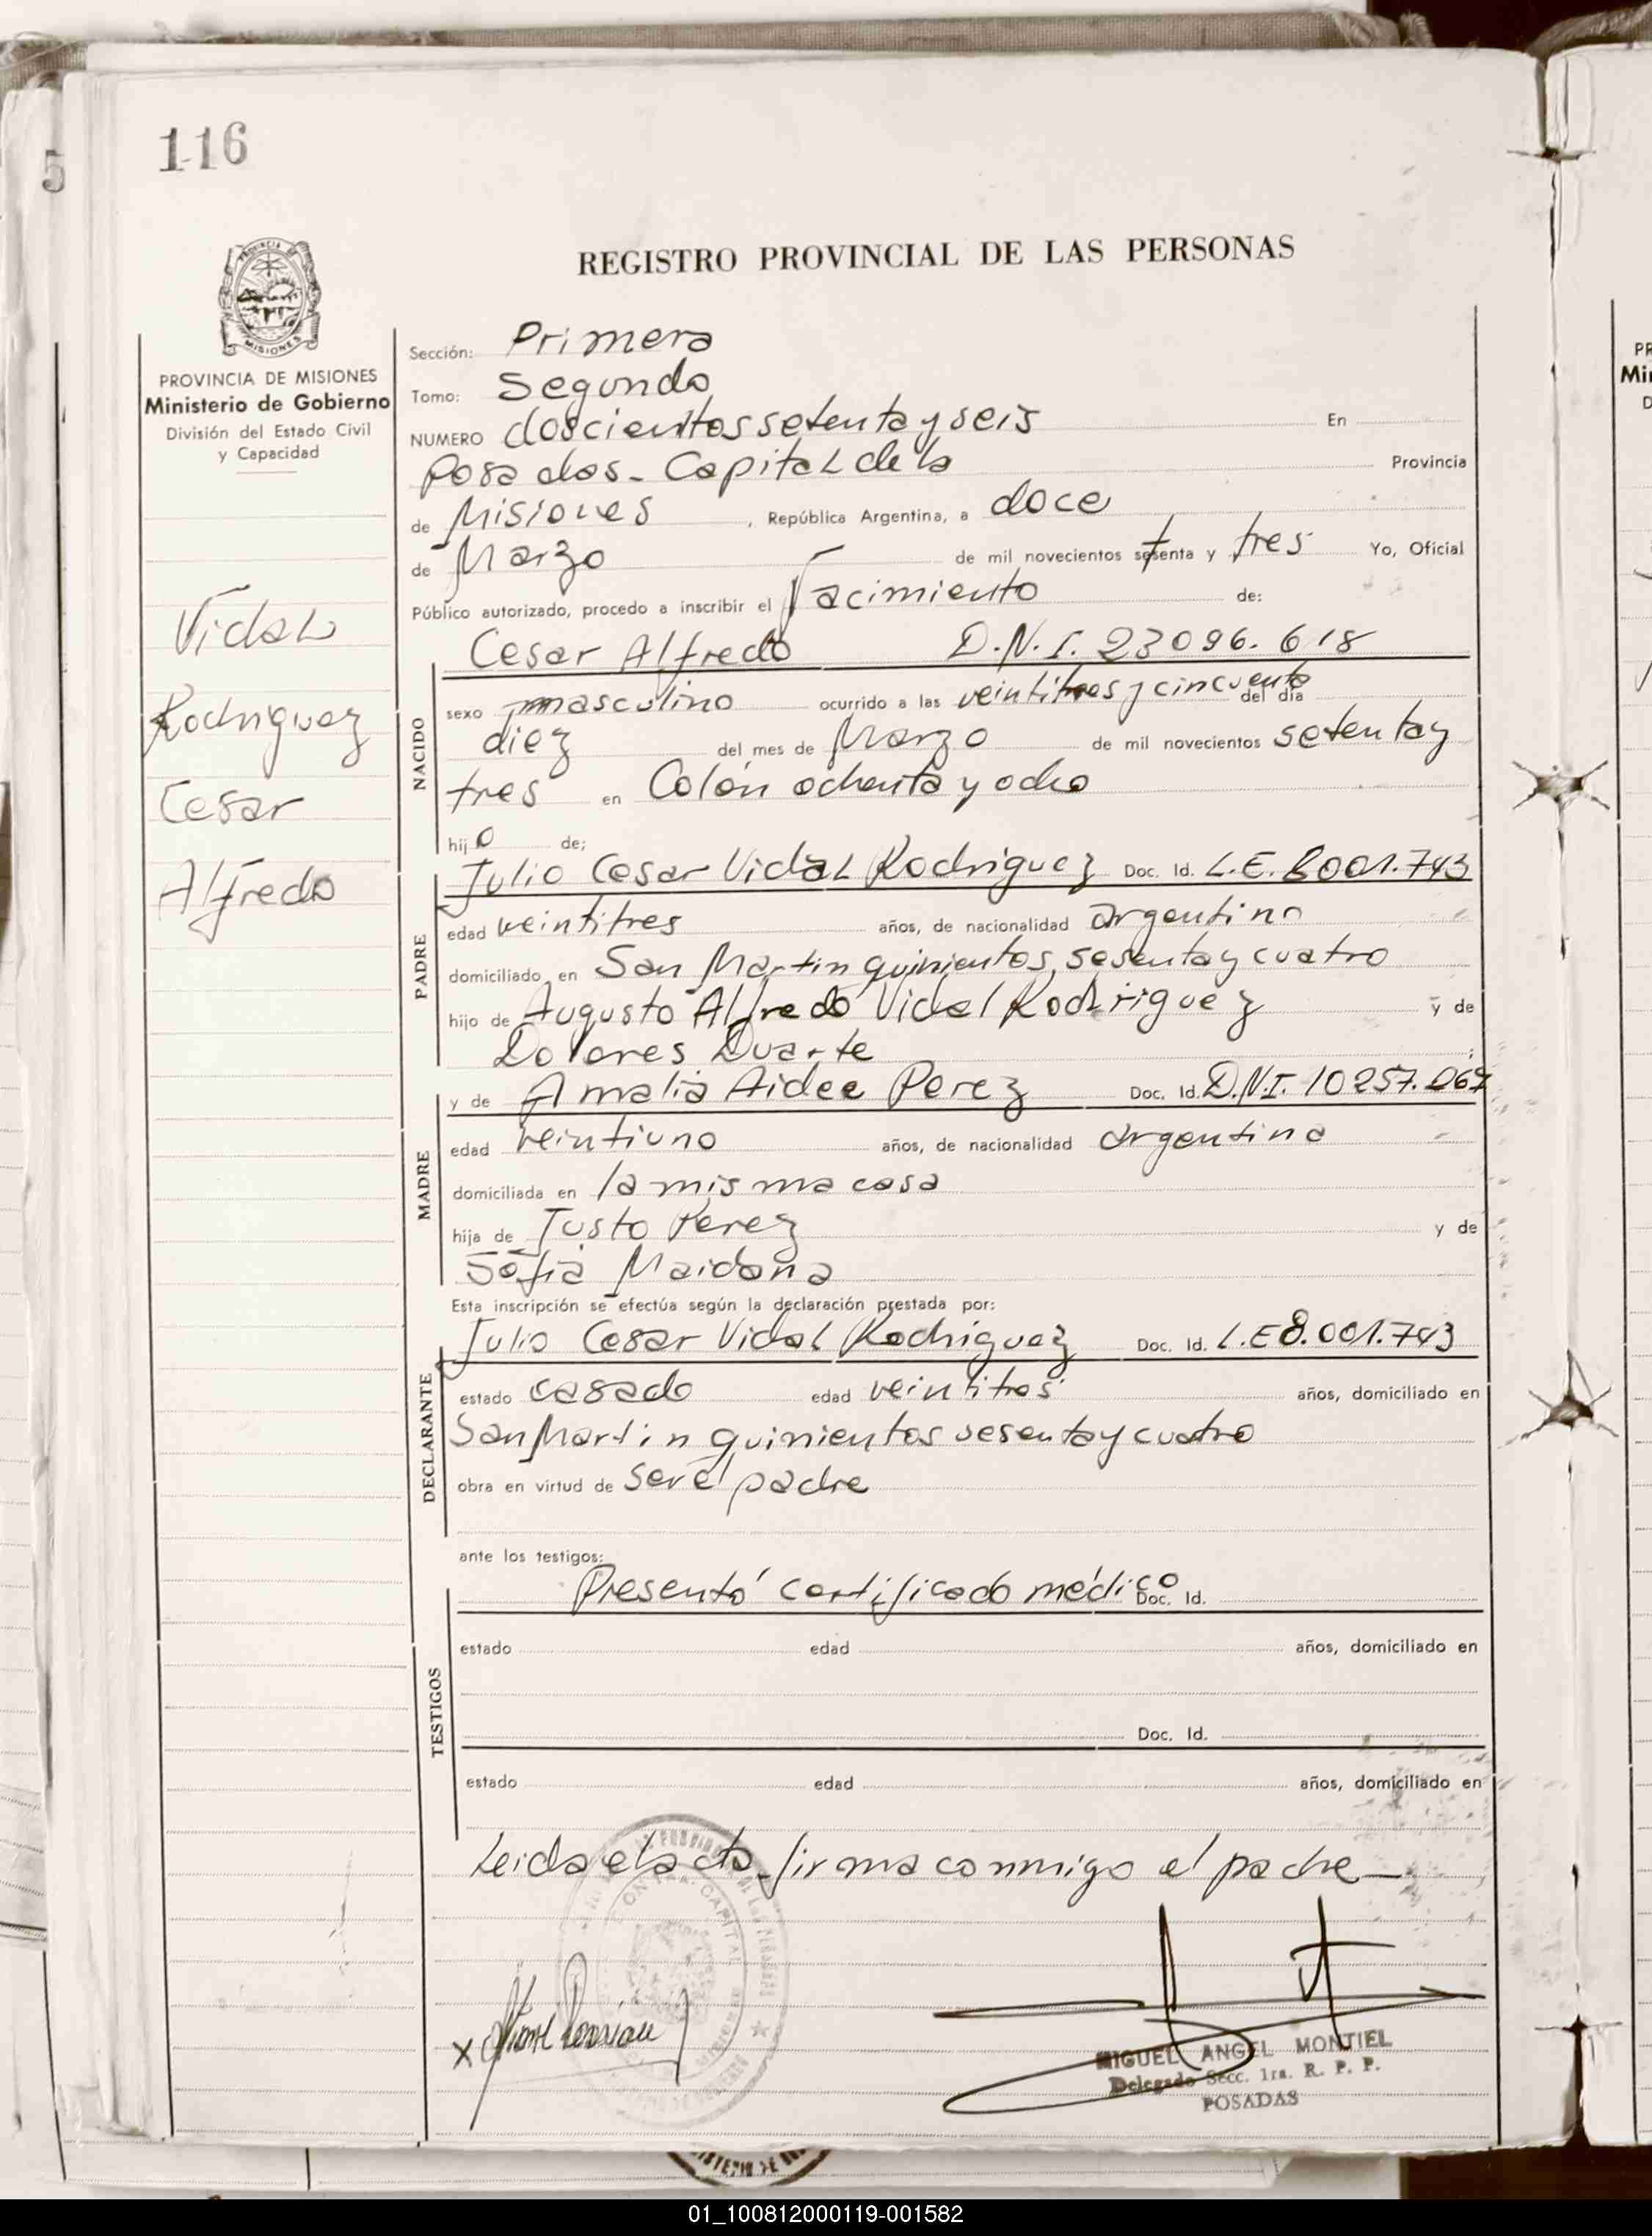 116
5
REGISTRO PROVINCIAL DE LAS PERSONAS
PROVINCIA DE MISIONES
Ministerio de Gobierno
División del Estado Civil
y Capacidad
Vidal
Rodriguez
Cesar
Alfredo
Sección: Primera
Tomo: Segundo
NUMERO doscientos setenta y seis En
Posadas - Capital de la Provincia
de Misiones, República Argentina, a doce
de Marzo de mil novecientos setenta y tres Yo, Oficial
Público autorizado, procedo a inscribir el Nacimiento de:
Cesar Alfredo D.N.I. 23096.618
NACIDO
sexo masculino ocurrido a las veintitres y cincuenta del día
diez del mes de Marzo de mil novecientos setenta y
tres en Colón ochenta y ocho
hijo de;
PADRE
Julio Cesar Vidal Rodriguez Doc. Id. L.E. 8001.743
edad veintitres años, de nacionalidad argentino
domiciliado en San Martin quinientos sesenta y cuatro
hijo de Augusto Alfredo Vidal Rodriguez y de
Dolores Duarte;
MADRE
y de Amalia Aidee Perez Doc. Id. D.N.I. 10257.
edad veintiuno años, de nacionalidad argentina
domiciliada en la misma casa
hija de Justo Perez y de
Sofia Maidana
Esta inscripción se efectúa según la declaración prestada por:
DECLARANTE
Julio Cesar Vidal Rodriguez Doc. Id. L.E 8.001.743
estado casado edad veintitres años, domiciliado en
San Martin quinientos sesenta y cuatro
obra en virtud de ser el padre
ante los testigos:
TESTIGOS
Presentó certificado médico Doc. Id.
estado edad años, domiciliado en
Doc. Id.
estado edad años, domiciliado en
Leida el acta firma conmigo el padre
X
MIGUEL ANGEL MONTIEL
Delegado Secc. 1ra. R. P. P.
POSADAS
01_100812000119-001582